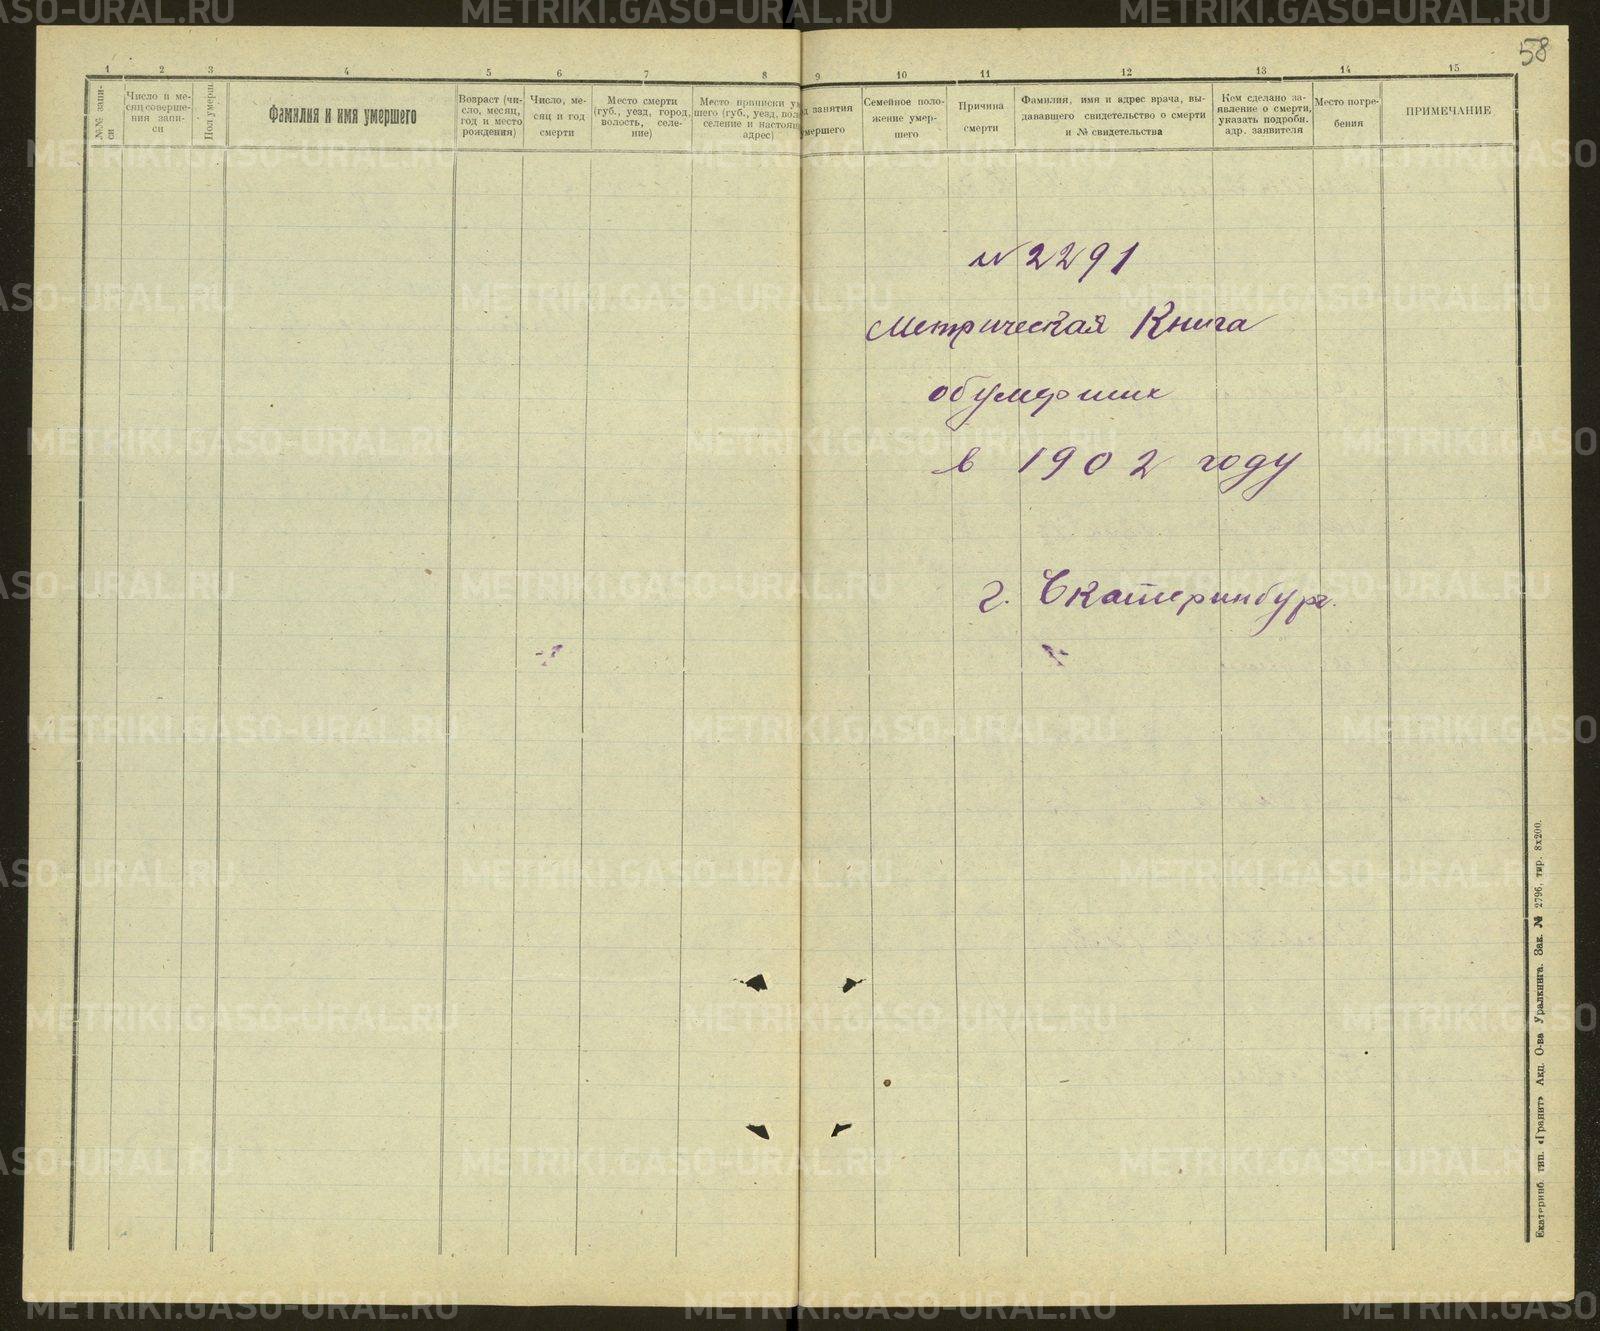 58
1 2 3 4 5 6 7 8 9 10 11 12 13 14 15
№№ запи-
си
Число и ме-
сяц соверше-
ния запи-
си
Пол умерш.
Фамилия и имя умершего
Возраст (чи-
сло, месяц,
год и место
рождения)
Число, ме-
сяц и год
смерти
Место смерти
(губ., уезд, город,
волость, селе-
ние)
Место приписки у
шего (губ., уезд, вол
селение и настоящ
адрес)
д занятия
умершего
Семейное поло-
жение умер-
шего
Причина
смерти
Фамилия, имя и адрес врача, вы-
дававшего свидетельство о смерти
и № свидетельства
Кем сделано за-
явление о смерти,
указать подробн.
адр. заявителя
Место погре-
бения
ПРИМЕЧАНИЕ
№ 2291
Метрическая Книга
об умерших
в 1902 году
г. Екатеринбург.
Екатеринб. тип. «Гранит» Акц. О-ва Уралкнига. Зак. № 2796, тир. 8х200.
METRIKI.GASO-URAL.RU